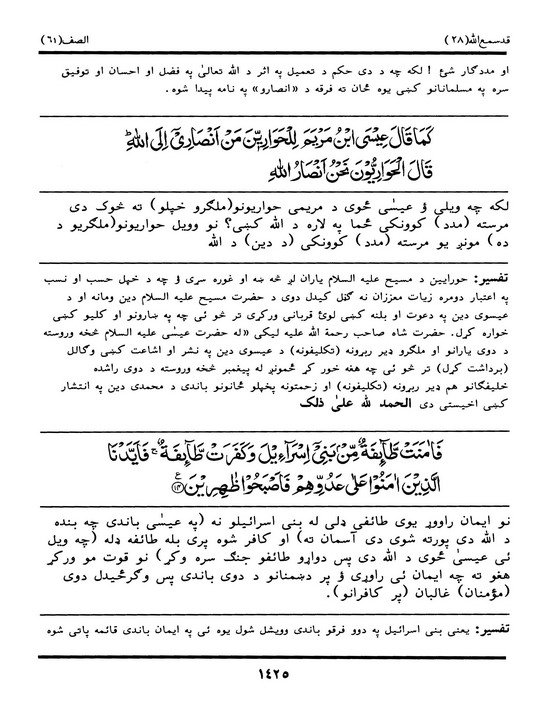 قدسمع الله(٢٨) الصف(٦١)
او مددګار شئ ! لکه چه د دی حکم د تعمیل په اثر د الله تعالیٰ په فضل او احسان او توفیق
سره په مسلمانانو کښی یوه ځان ته فرقه د «انصارو» په نامه پیدا شوه.
كَمَا قَالَ عِيْسَى ابْنُ مَرْيَمَ لِلْحَوَارِيّٖنَ مَنْ اَنْصَارِيْٓ اِلَى اللّٰهِ ؕ
قَالَ الْحَوَارِيُّوْنَ نَحْنُ اَنْصَارُ اللّٰهِ
لکه چه ویلی ؤ عیسٰی ځوی د مریمی حواریونو(ملګرو خپلو) ته څوک دی
مرسته (مدد) کوونکی ځما په لاره د الله کښی؟ نو وویل حواریونو(ملګریو د
ده) مونږ یو مرسته (مدد) کوونکی (د دین) د الله
تفسیر: حورایین د مسیح علیه السلام یاران لږ څه ښه او غوره سړی ؤ چه د خپل حسب او نسب
په اعتبار دومره زیات معززان نه ګڼل کیدل دوی د حضرت مسیح علیه السلام دین ومانه او د
عیسوی دین په دعوت او بلنه کښی لوئ قربانی ورکړی تر څو ئی چه په ښارونو او کلیو کښی
خواره کړل. حضرت شاه صاحب رحمة الله علیه لیکی «له حضرت عیسٰی علیه السلام څخه وروسته
د دوی یارانو او ملګرو ډیر ربړونه (تکلیفونه) د عیسوی دین په نشر او اشاعت کښی وګالل
(برداشت کړل) تر څو ئی چه هغه خور کړ ځمونږ له پیغمبر څخه وروسته د دوی راشده
خلیفګانو هم ډیر ربړونه (تکلیفونه) او زحمتونه پخپلو ځانونو باندی د محمدی دین په انتشار
کښی اخیستی دی الحمد لله علیٰ ذلک
فَاٰمَنَتْ طَّآىِٕفَةٌ مِّنْۢ بَنِيْٓ اِسْرَآءِيْلَ وَكَفَرَتْ طَّآىِٕفَةٌ ۚ فَاَيَّدْنَا
الَّذِيْنَ اٰمَنُوْا عَلٰى عَدُوِّهِمْ فَاَصْبَحُوْا ظٰهِرِيْنَ ۝١٤ ع
نو ایمان راووړ یوی طائفی ډلی له بنی اسرائیلو نه (په عیسٰی باندی چه بنده
د الله دی پورته شوی دی آسمان ته) او کافر شوه پری بله طائفه ډله (چه ویل
ئی عیسیٰ ځوی د الله دی پس دواړو طائفو جنګ سره وکړ) نو قوت مو ورکړ
هغو ته چه ایمان ئی راوړی ؤ پر دښمنانو د دوی باندی پس وګرځیدل دوی
(مؤمنان) غالبان (پر کافرانو).
تفسیر: یعنی بنی اسرائیل په دوو فرقو باندی وویشل شول یوه ئی په ایمان باندی قائمه پاتی شوه
١٤٢٥